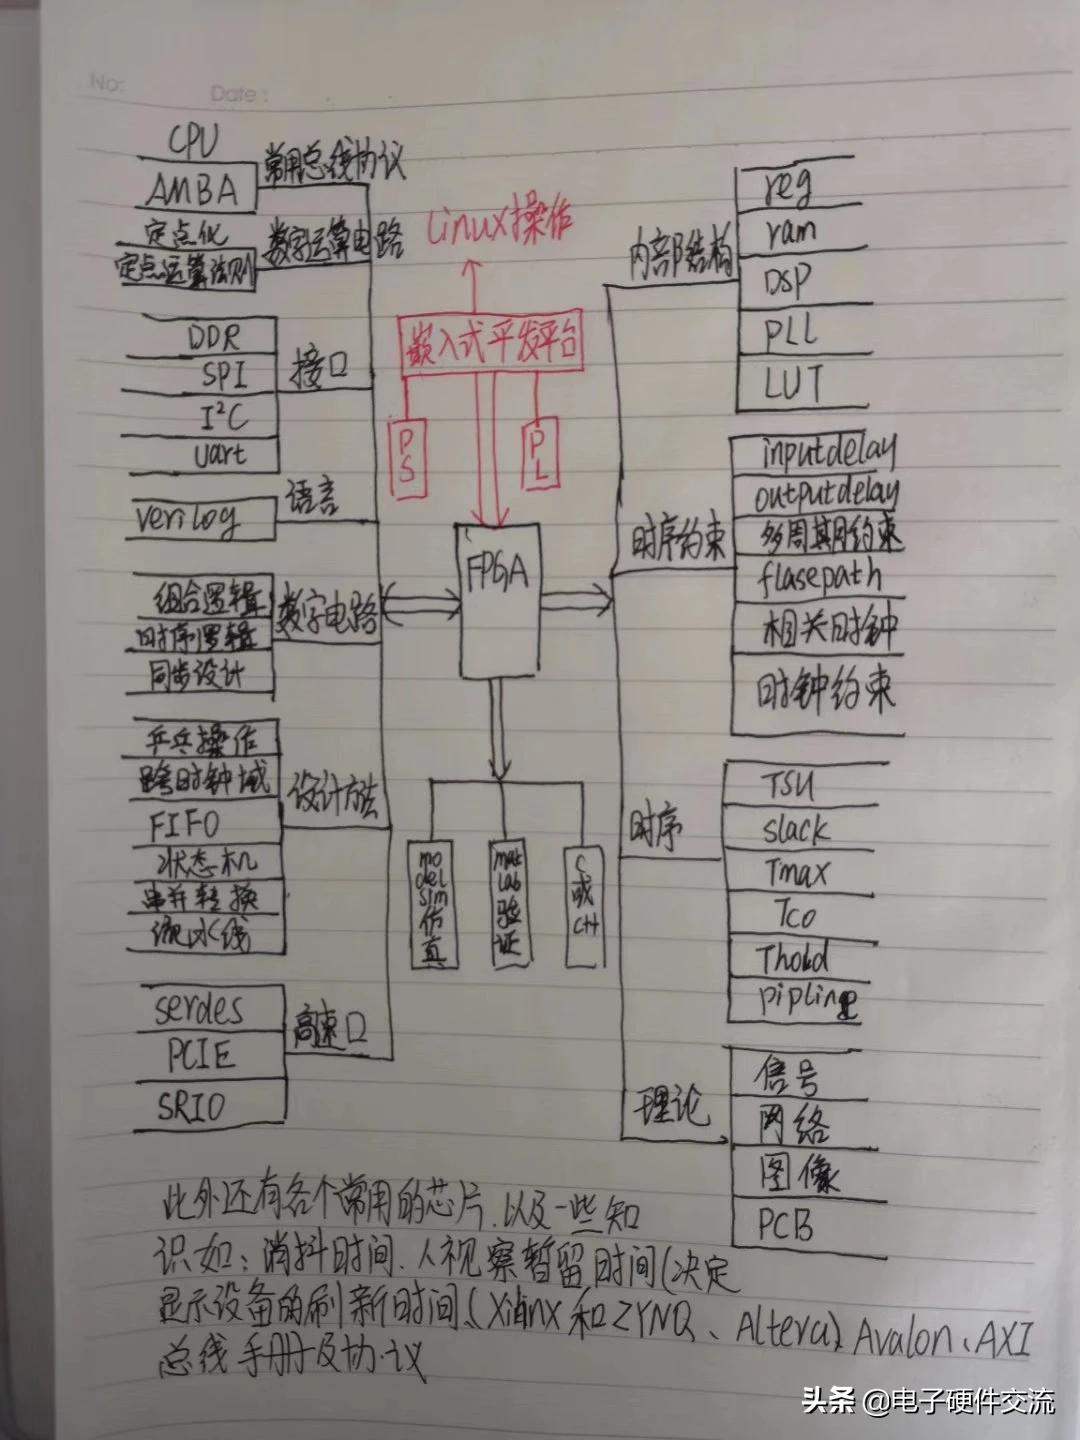 No:
Date:
CPU
AMBA
常用总线协议
定点化
定点运算法则
数字运算电路
DDR
SPI
I²C
uart
接口
verilog
语言
组合逻辑
时序逻辑
同步设计
数字电路
乒乓操作
跨时钟域
FIFO
状态机
串并转换
流水线
设计方法
serdes
PCIE
SRIO
高速口
Linux操作
嵌入式平发平台
PS
PL
FPGA
modelsim仿真
matlab验证
C或C++
内部结构
reg
ram
DSP
PLL
LUT
时序约束
inputdelay
outputdelay
多周期约束
flasepath
相关时钟
时钟约束
时序
TSU
slack
Tmax
Tco
Thold
pipline
理论
信号
网络
图像
PCB
此外还有各个常用的芯片.以及一些知
识如:消抖时间.人视察暂留时间(决定
显示设备的刷新时间.(Xilinx和ZYNQ、Altera)、Avalon、AXI
总线手册及协议
头条 @电子硬件交流